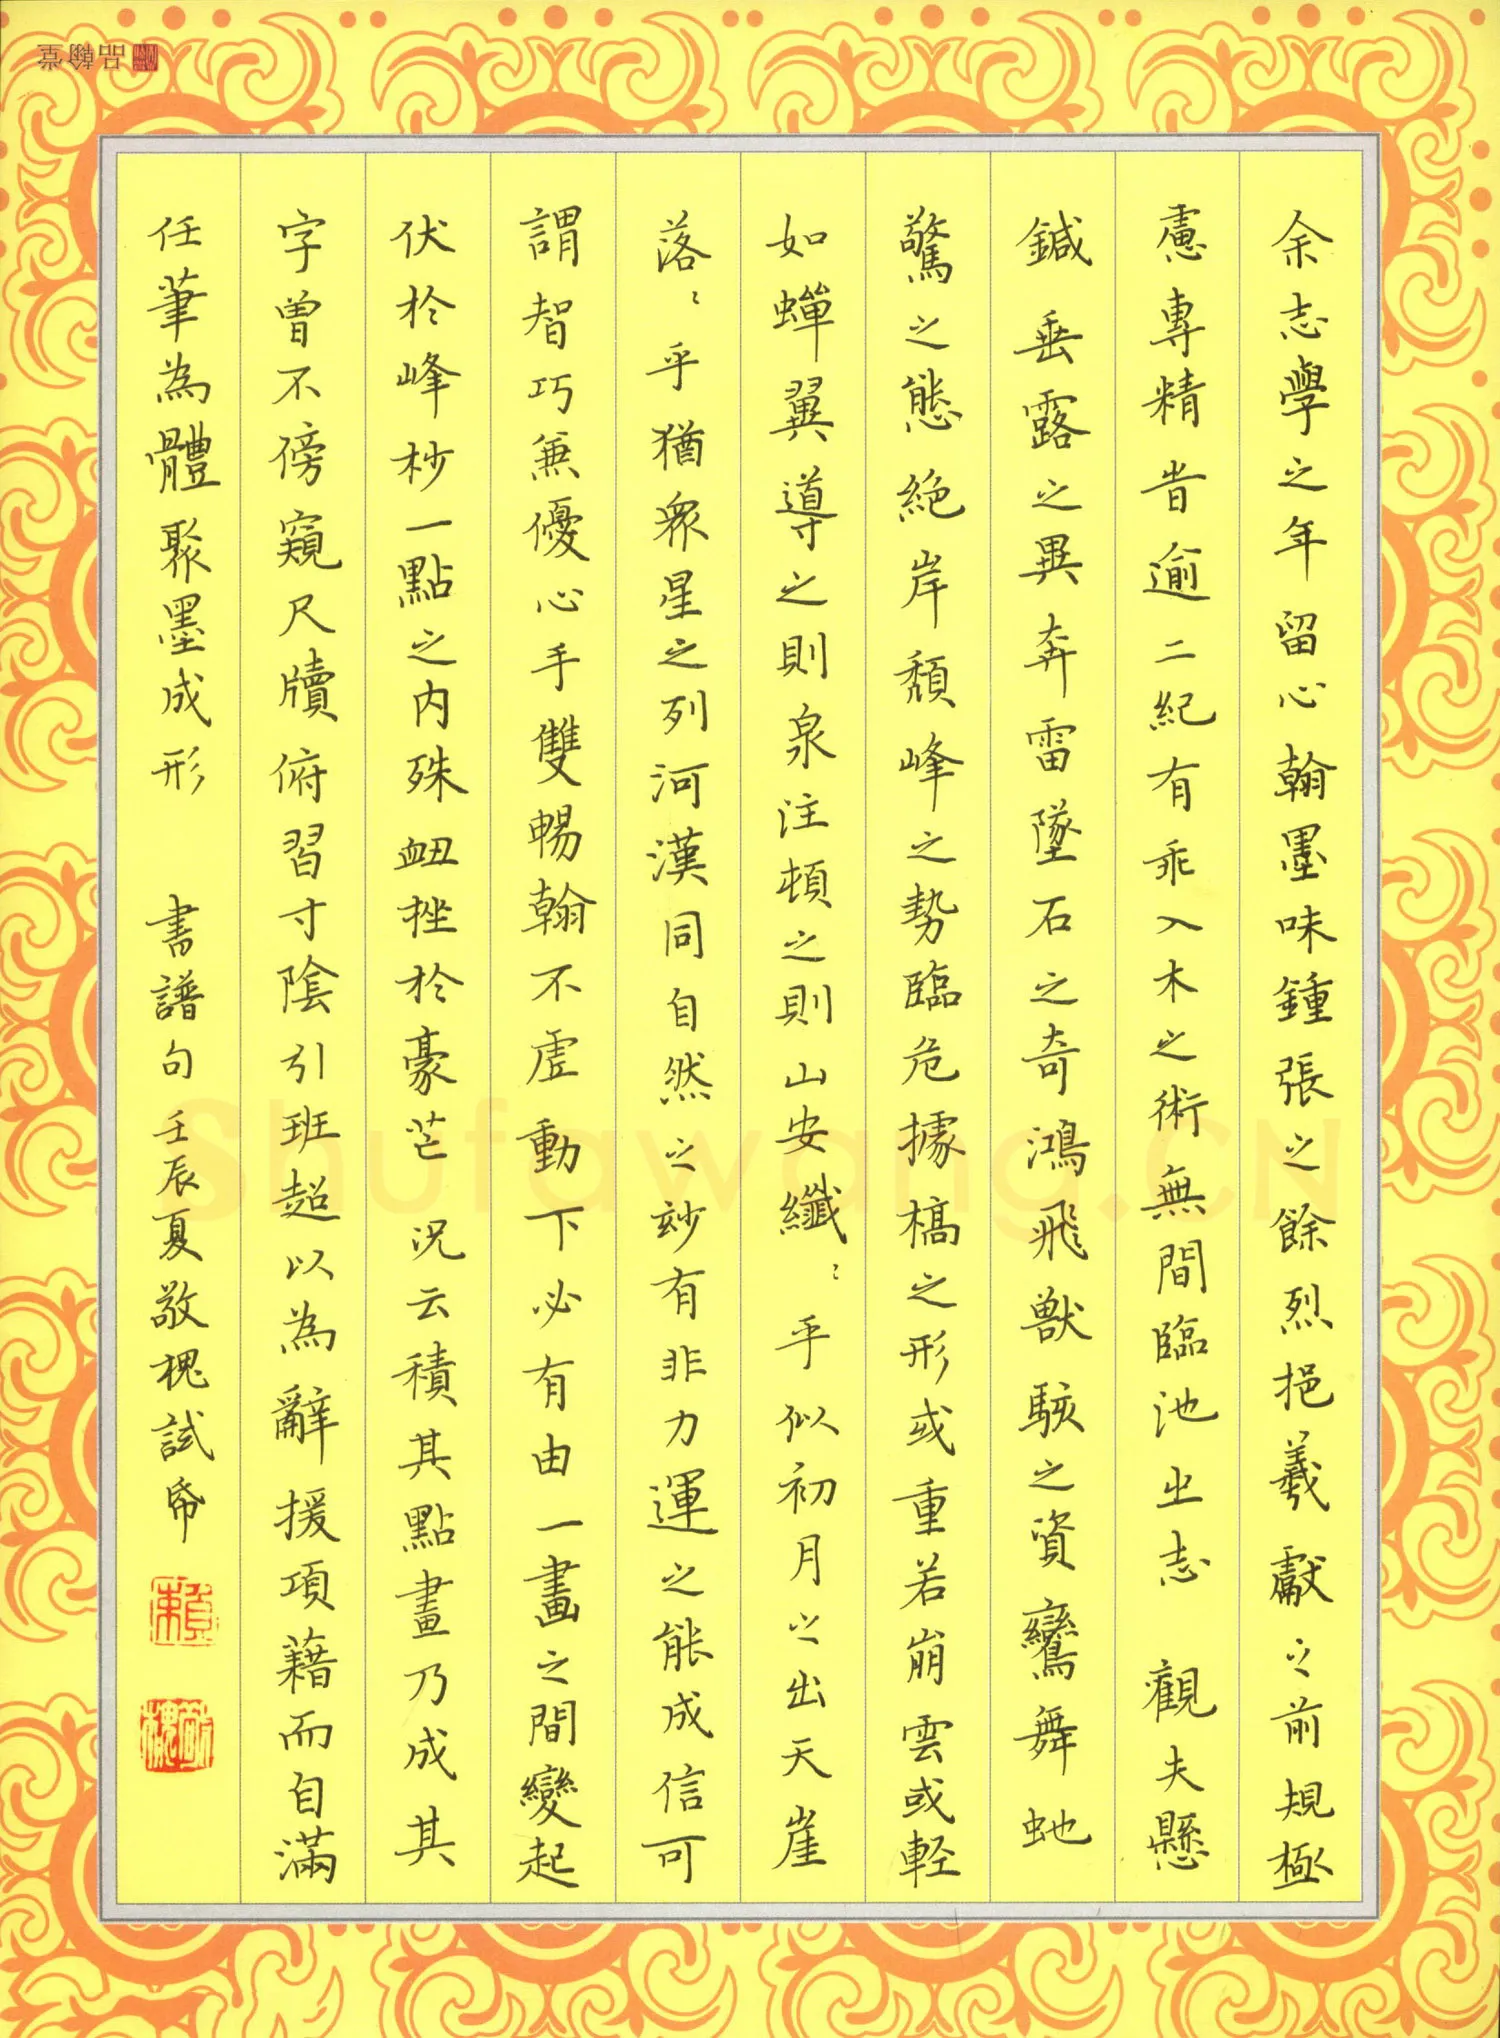 余志學之年留心翰墨味鍾張之餘烈挹羲獻之前規極
慮專精昔逾二紀有乖入木之術無間臨池之志 觀夫懸
鍼垂露之異奔雷墜石之奇鴻飛獸駭之資鸞舞虵
驚之態絕岸頹峰之勢臨危據槁之形或重若崩雲或輕
如蟬翼導之則泉注頓之則山安纖〻乎似初月之出天崖
落〻乎猶眾星之列河漢同自然之妙有非力運之能成信可
謂智巧兼優心手雙暢翰不虛動下必有由一畫之間變起
伏於峰杪一點之內殊衄挫於豪芒 況云積其點畫乃成其
字曾不傍窺尺牘俯習寸陰引班超以為辭援項籍而自滿
任筆為體聚墨成形 書譜句 壬辰夏敬槐試帋
賴
敬槐
Shufawang.CN